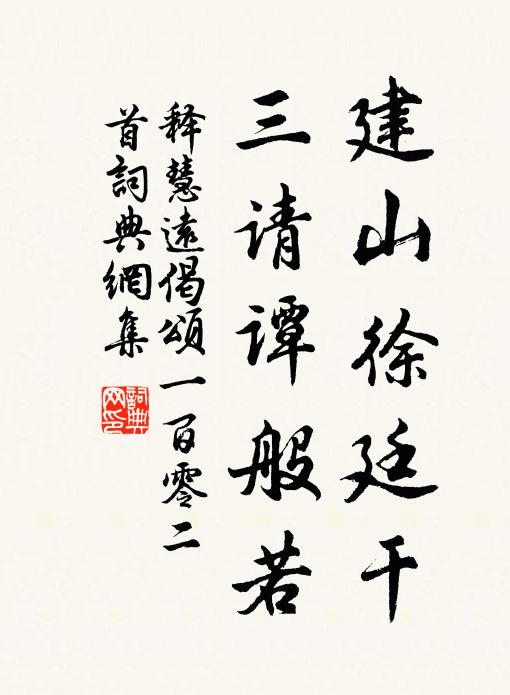 建山徐廷干
三请谭般若
释慧遠偈頌一百零二
首詞典網集
詞典
网印